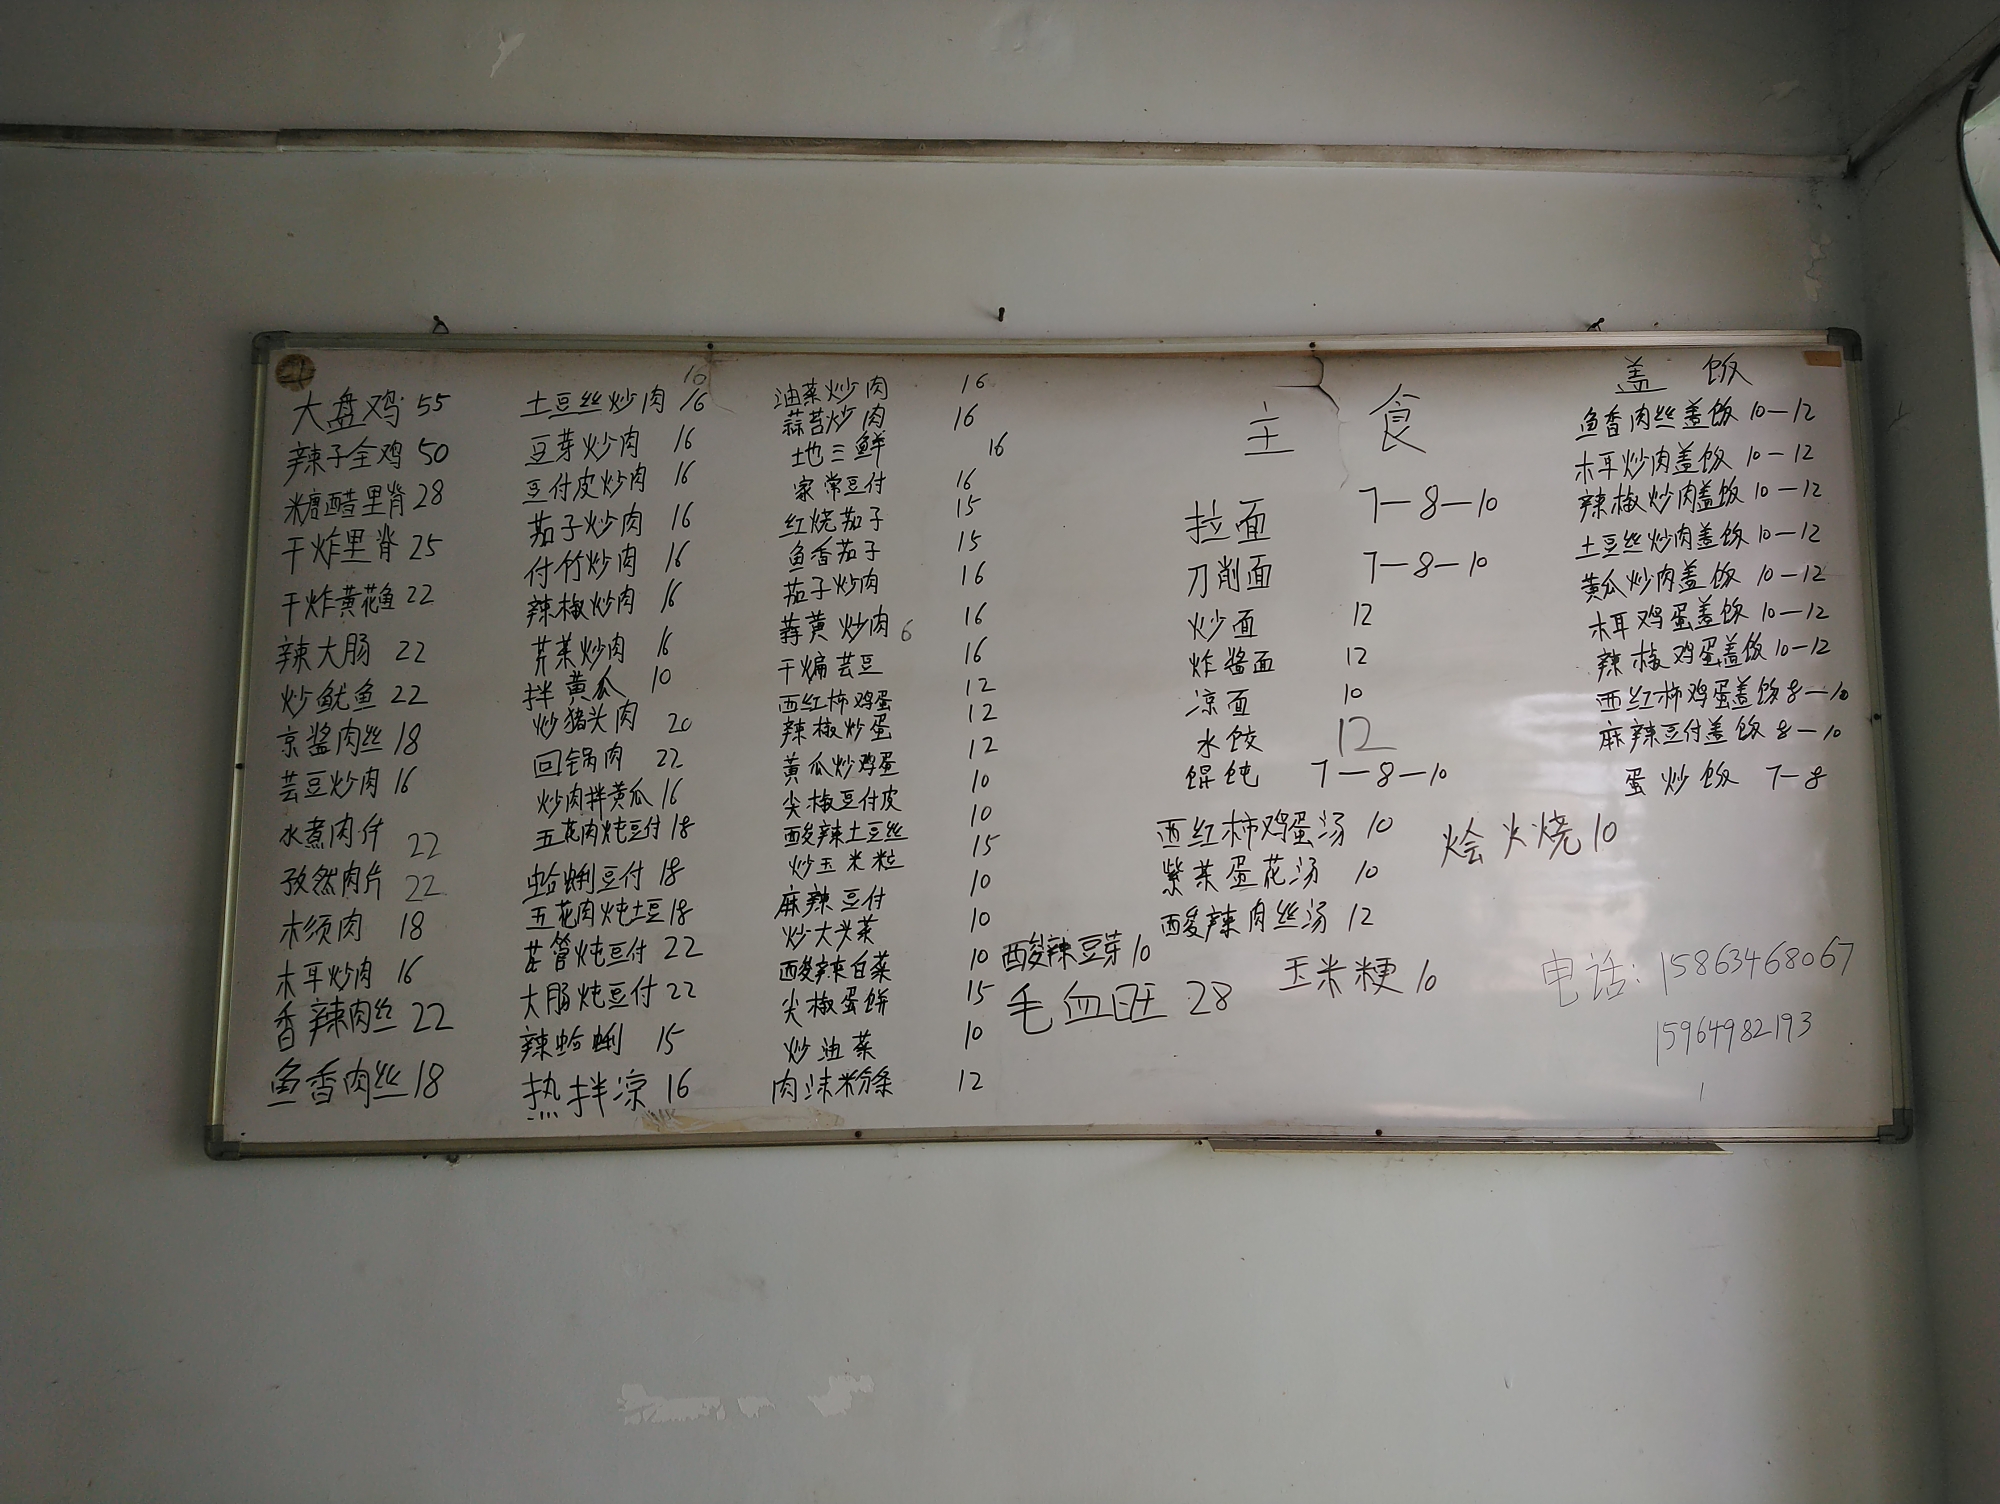 大盘鸡 55
辣子全鸡 50
糖醋里脊 28
干炸里脊 25
干炸黄花鱼 22
辣大肠 22
炒鱿鱼 22
京酱肉丝 18
芸豆炒肉 16
水煮肉片 22
孜然肉片 22
木须肉 18
木耳炒肉 16
香辣肉丝 22
鱼香肉丝 18
10
土豆丝炒肉 16
豆芽炒肉 16
豆付皮炒肉 16
茄子炒肉 16
付竹炒肉 16
辣椒炒肉 16
芹菜炒肉 16
拌黄瓜 10
炒猪头肉 20
回锅肉 22
炒肉拌黄瓜 16
五花肉炖豆付 18
蛤蜊豆付 18
五花肉炖土豆 18
管炖豆付 22
大肠炖豆付 22
辣蛤蜊 15
热拌凉 16
油菜炒肉 16
蒜苔炒肉 16
地三鲜 16
家常豆付 16
红烧茄子 15
鱼香茄子 15
茄子炒肉 16
蒜黄炒肉 6 16
干煸芸豆 16
西红柿鸡蛋 12
辣椒炒蛋 12
黄瓜炒鸡蛋 12
尖椒豆付皮 10
酸辣土豆丝 10
炒玉米粒 15
麻辣豆付 10
炒大头菜 10
酸辣白菜 10
尖椒蛋饼 15
炒油菜 10
肉沫粉条 12
主食
拉面 7-8-10
刀削面 7-8-10
炒面 12
炸酱面 12
凉面 10
水饺 12
馄饨 7-8-10
西红柿鸡蛋汤 10
紫菜蛋花汤 10
酸辣肉丝汤 12
酸辣豆芽 10
毛血旺 28
玉米粳 10
烩火烧 10
盖饭
鱼香肉丝盖饭 10-12
木耳炒肉盖饭 10-12
辣椒炒肉盖饭 10-12
土豆丝炒肉盖饭 10-12
黄瓜炒肉盖饭 10-12
木耳鸡蛋盖饭 10-12
辣椒鸡蛋盖饭 10-12
西红柿鸡蛋盖饭 8-10
麻辣豆付盖饭 8-10
蛋炒饭 7-8
电话: 15863468067
15964982193